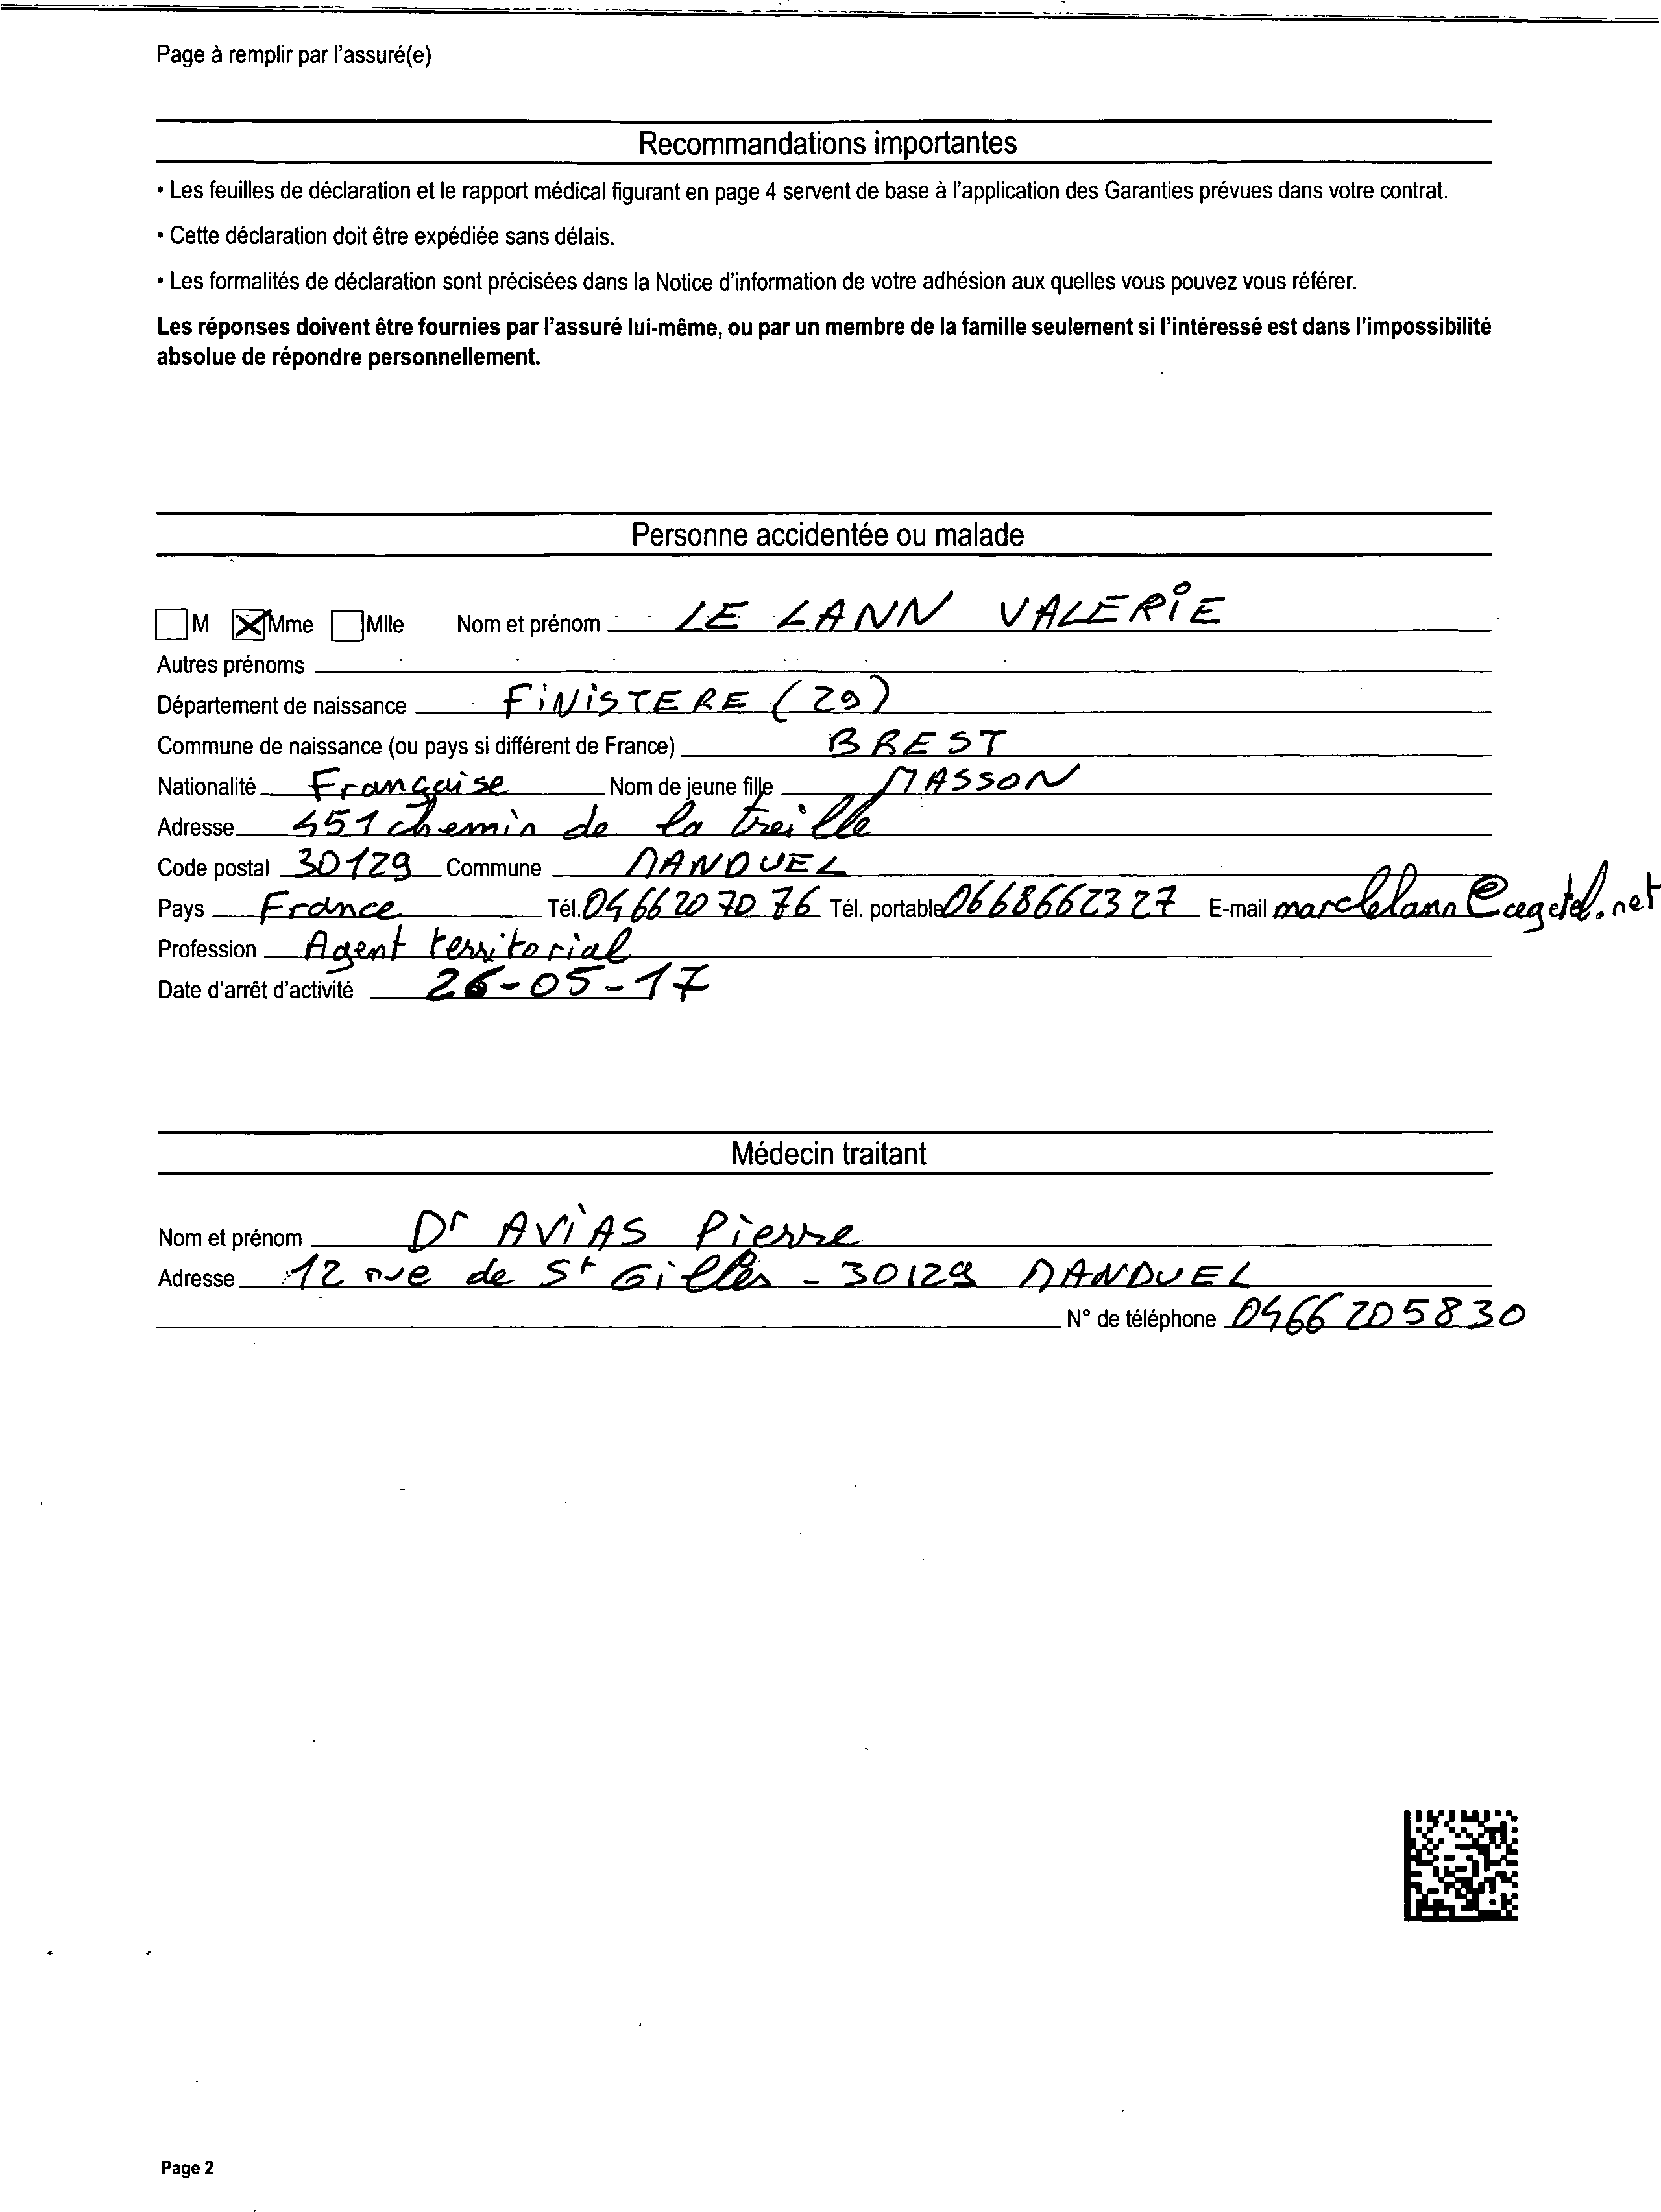 Page à remplir par l'assuré(e)
Recommandations importantes
• Les feuilles de déclaration et le rapport médical figurant en page 4 servent de base à l'application des Garanties prévues dans votre contrat.
• Cette déclaration doit être expédiée sans délais.
• Les formalités de déclaration sont précisées dans la Notice d'information de votre adhésion aux quelles vous pouvez vous référer.
Les réponses doivent être fournies par l'assuré lui-même, ou par un membre de la famille seulement si l'intéressé est dans l'impossibilité
absolue de répondre personnellement.
Personne accidentée ou malade
M Mme Mlle Nom et prénom LE LANN VALERIE
Autres prénoms
Département de naissance FINISTERE (29)
Commune de naissance (ou pays si différent de France) BREST
Nationalité Française Nom de jeune fille MASSON
Adresse 451 chemin de la treille
Code postal 30129 Commune MANDUEL
Pays France Tél. 04 66 20 70 76 Tél. portable 0668662327 E-mail marclelann@cegetel.net
Profession Agent territorial
Date d'arrêt d'activité 26-05-17
Médecin traitant
Nom et prénom Dr AVIAS Pierre
Adresse 12 rue de St Gilles - 30129 MANDUEL
N° de téléphone 0466205830
Page 2